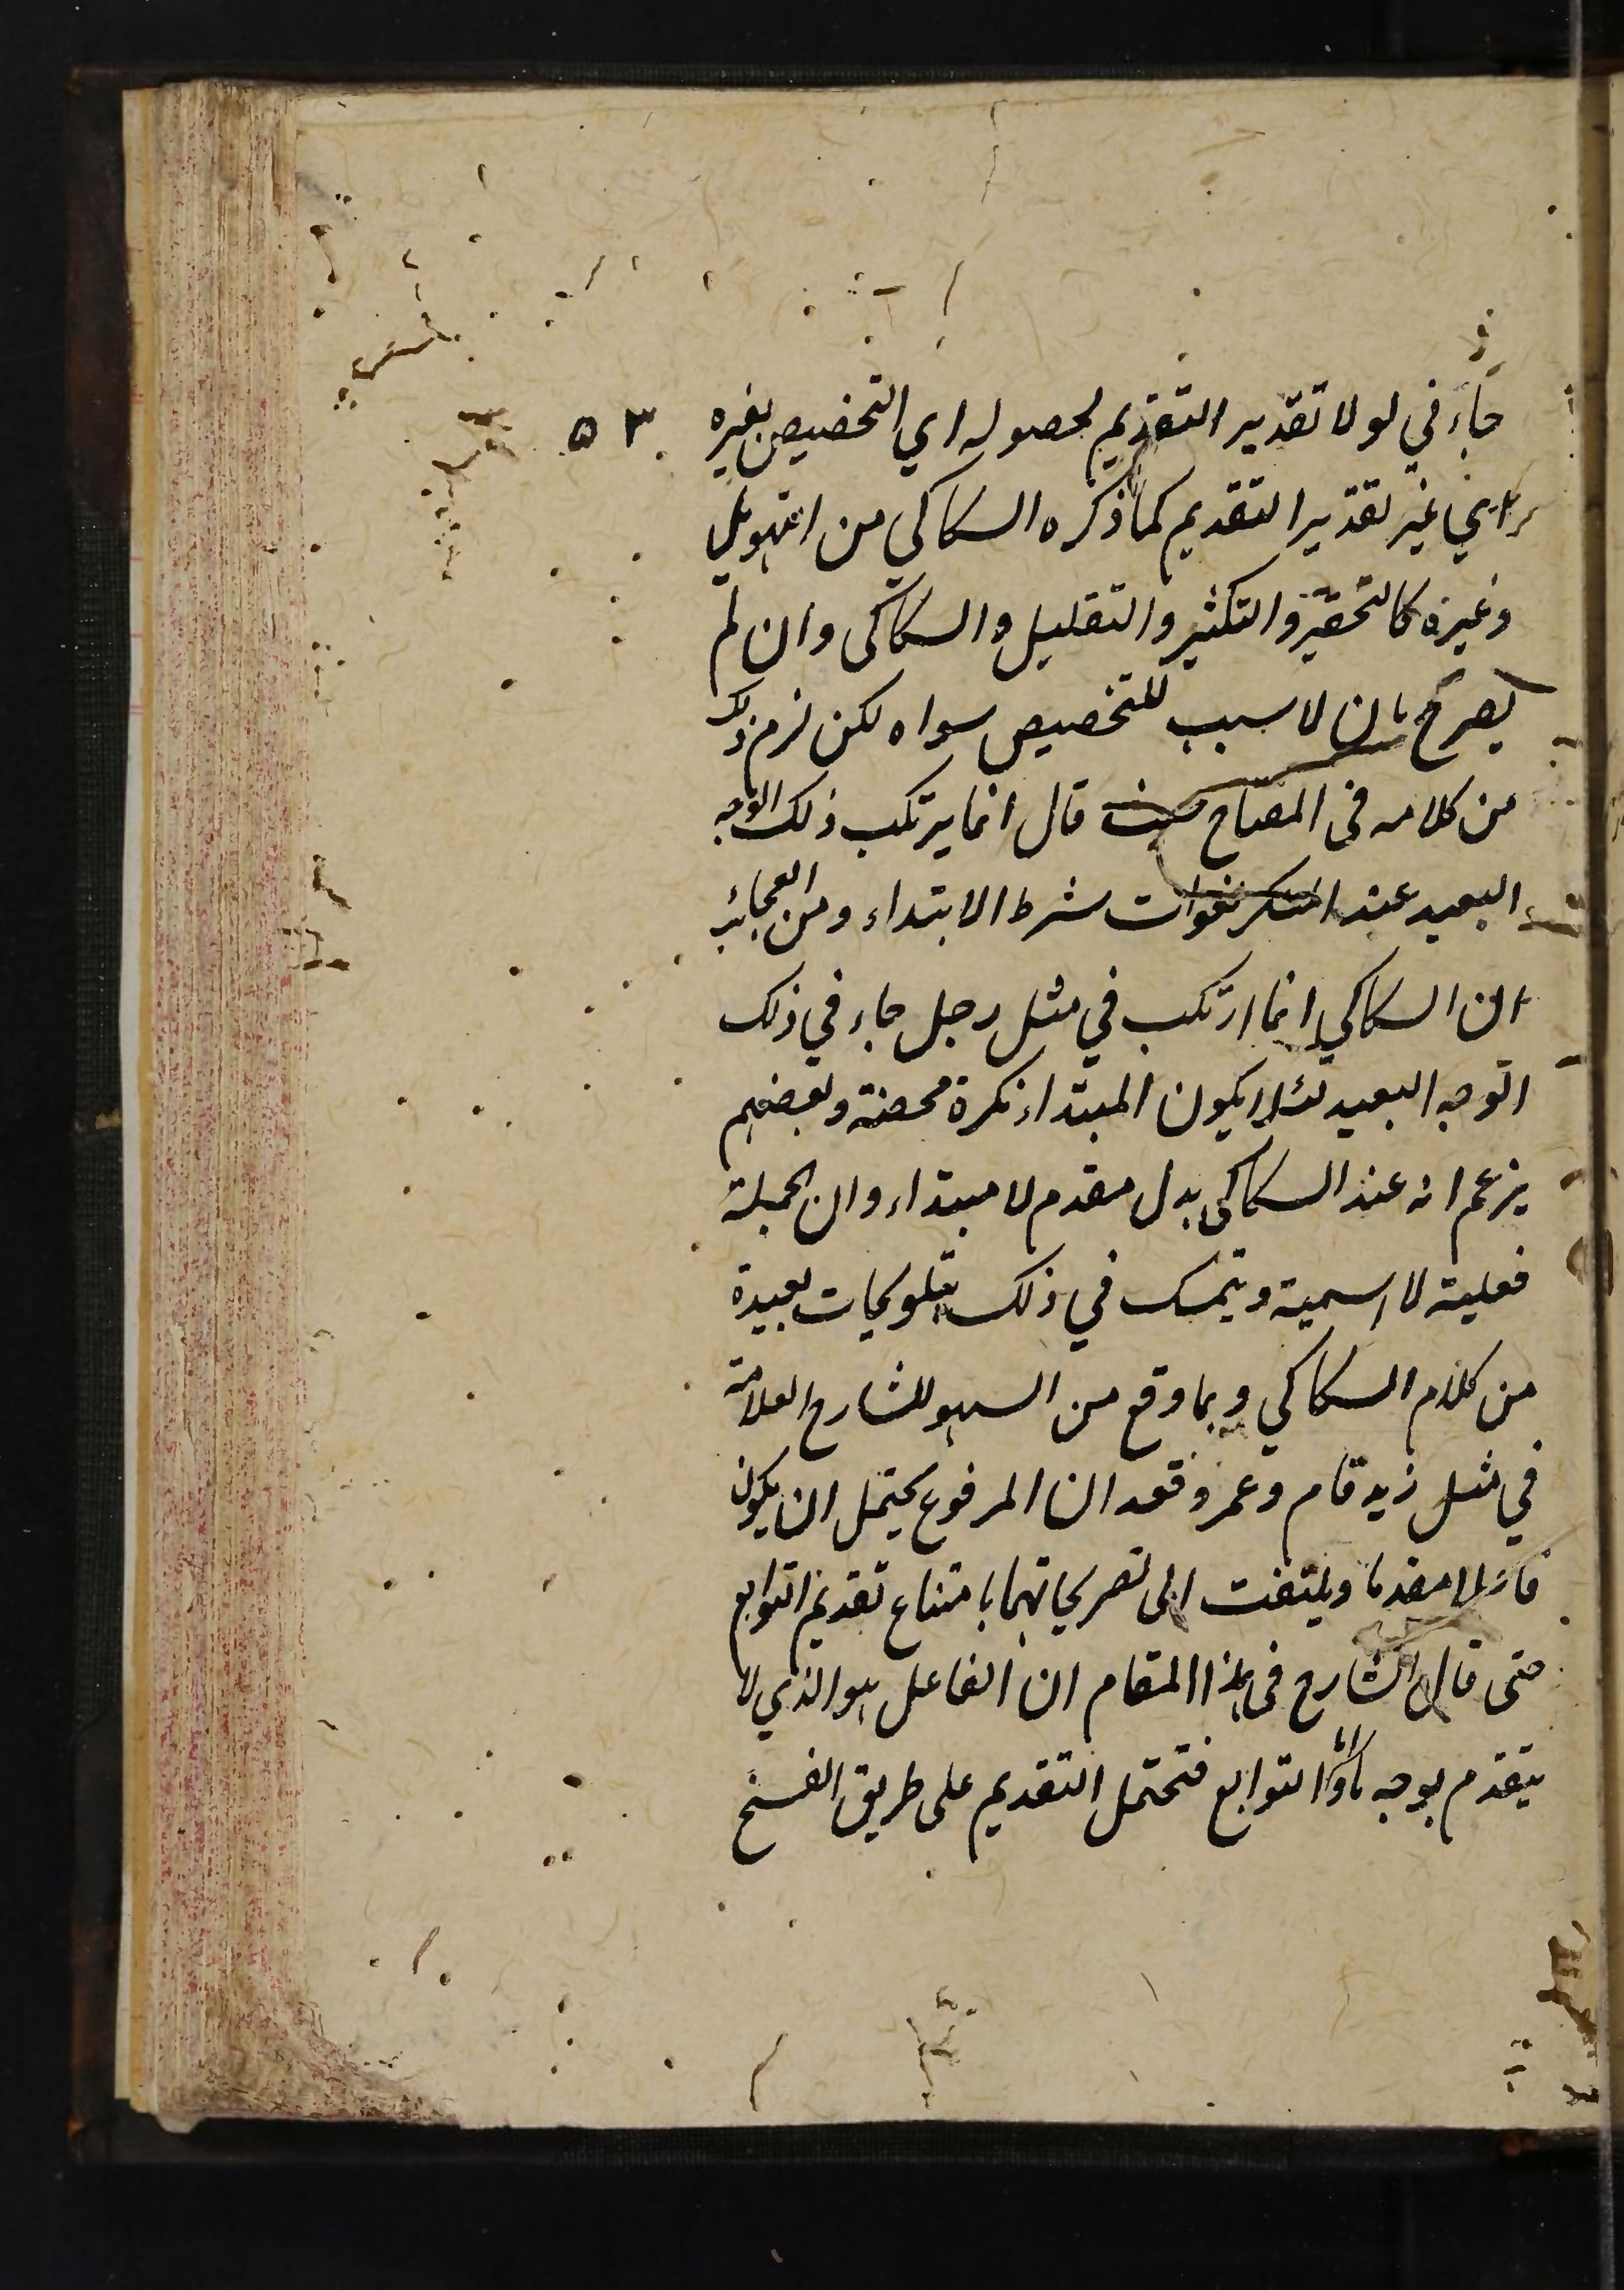 جاءني لولا تقدير التقديم لحصوله اي التخصيص بغيره
٥٣
اي غير تقدير التقديم كما ذكره السكاكي من التهويل
وغيره كالتحقير والتكثير والتقليل والسكاكي وان لم
يصرح بان لا سبب للتخصيص سواه لكن لزم ذلك
من كلامه في المفتاح حيث قال انما يرتكب ذلك الوجه
البعيد عند المنكر لفوات شرط الابتداء ومن العجائب
ان السكاكي انما ارتكب في مثل رجل جاءني ذلك
الوجه البعيد لئلا يكون المبتداء نكرة محضة وبعضهم
يزعم انه عند السكاكي بدل مقدم لا مبتداء وان الجملة
فعلية لا اسمية ويتمسك في ذلك بتلويحات بعيدة
من كلام السكاكي وبما وقع من السهو للشارح العلامة
في مثل زيد قام وعمرو قعد ان المرفوع يحتمل ان يكون
مقدما ويلتفت الى تصريحاتهما بامتناع تقديم التوابع
حتى قال الشارح في هذا المقام ان الفاعل هو الذي لا
يتقدم بوجه ما واما التوابع فتحتمل التقديم على طريق الفسخ